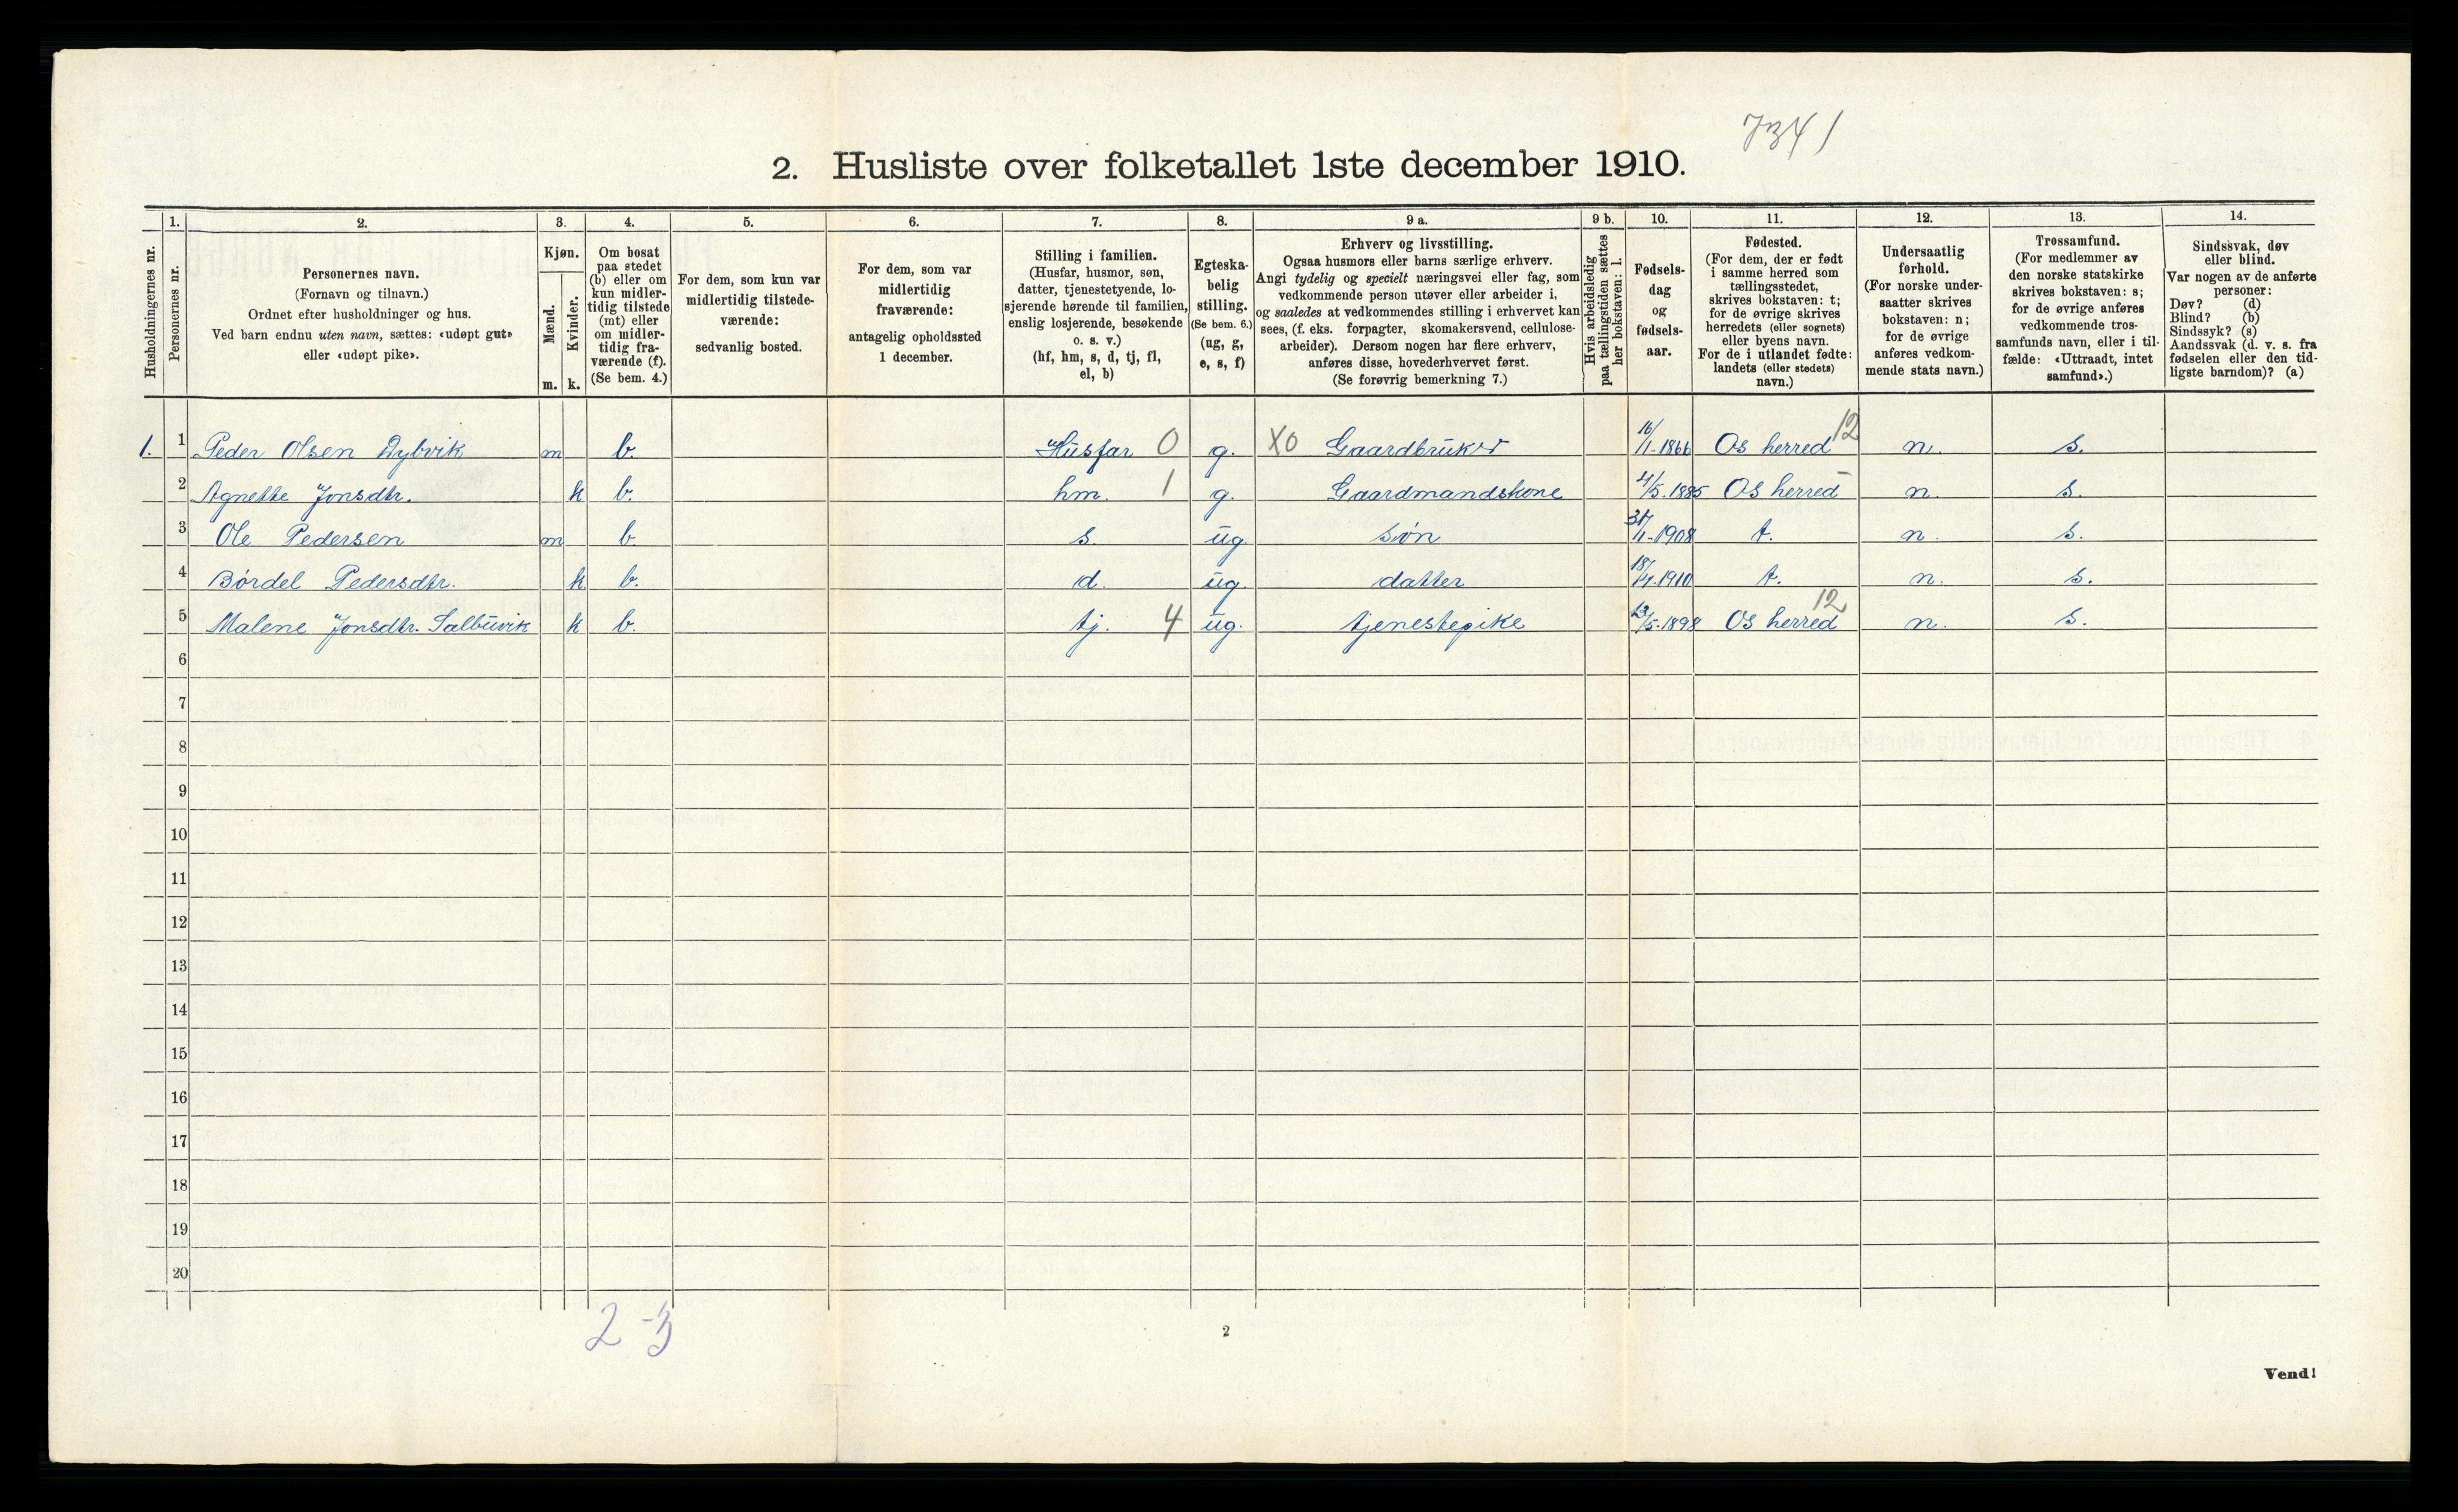 7341
2. Husliste over folketallet 1ste december 1910.
1. 2. 3. 4. 5. 6. 7. 8. 9 a. 9 b. 10. 11. 12. 13. 14.
Husholdningernes nr.
Personernes nr.
Personernes navn.
(Fornavn og tilnavn.)
Ordnet efter husholdninger og hus.
Ved barn endnu uten navn, sættes: «udøpt gut»
eller «udøpt pike».
Kjøn.
Mænd.
Kvinder.
m. k.
Om bosat
paa stedet
(b) eller om
kun midler-
tidig tilstede
(mt) eller
om midler-
tidig fra-
værende (f).
(Se bem. 4.)
For dem, som kun var
midlertidig tilstede-
værende:
sedvanlig bosted.
For dem, som var
midlertidig
fraværende:
antagelig opholdssted
1 december.
Stilling i familien.
(Husfar, husmor, søn,
datter, tjenestetyende, lo-
sjerende hørende til familien,
enslig losjerende, besøkende
o. s. v.)
(hf, hm, s, d, tj, fl,
el, b)
Egteska-
belig
stilling.
(Se bem. 6.)
(ug, g,
e, s, f)
Erhverv og livsstilling.
Ogsaa husmors eller barns særlige erhverv.
Angi tydelig og specielt næringsvei eller fag, som
vedkommende person utøver eller arbeider i,
og saaledes at vedkommendes stilling i erhvervet kan
sees, (f. eks. forpagter, skomakersvend, cellulose-
arbeider). Dersom nogen har flere erhverv,
anføres disse, hovederhvervet først.
(Se forøvrig bemerkning 7.)
Hvis arbeidsledig
paa tællingstiden sættes
her bokstaven: l.
Fødsels-
dag
og
fødsels-
aar.
Fødested.
(For dem, der er født
i samme herred som
tællingsstedet,
skrives bokstaven: t;
for de øvrige skrives
herredets (eller sognets)
eller byens navn.
For de i utlandet fødte:
landets (eller stedets)
navn.)
Undersaatlig
forhold.
(For norske under-
saatter skrives
bokstaven: n;
for de øvrige
anføres vedkom-
mende stats navn.)
Trossamfund.
(For medlemmer av
den norske statskirke
skrives bokstaven: s;
for de øvrige anføres
vedkommende tros-
samfunds navn, eller i til-
fælde: «Uttraadt, intet
samfund».)
Sindssvak, døv
eller blind.
Var nogen av de anførte
personer:
Døv? (d)
Blind? (b)
Sindssyk? (s)
Aandssvak (d. v. s. fra
fødselen eller den tid-
ligste barndom)? (a)
1. 1 Peder Olsen Dybvik m b. Husfar 0 g. X0 Gaardbruker 16/11-1866 Os herred 12 n. s.
2 Agnethe Jonsdtr. k b. hm. 1 g. Gaardmandskone 4/5.1885 Os herred n. s.
3 Ole Pedersen m b. s. ug. søn 1908 t. n. s.
4 Børdel Pedersdtr. k b. d. ug. datter 1910 t. n. s.
5 Malene Jonsdtr. Salbuvik k b. tj. 4 ug. tjenestepike 13/5-1898 Os herred 12 n. s.
6
7
8
9
10
11
12
13
14
15
16
17
18
19
20
2-3
2
Vend!